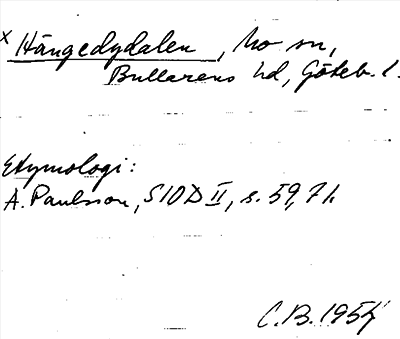 x Hängedydalen, Mo sn,
Bullarens hd, Göteb. l.
Etymologi:
A. Paulsson, SIOD II, s. 59, 71.
C.B. 1954